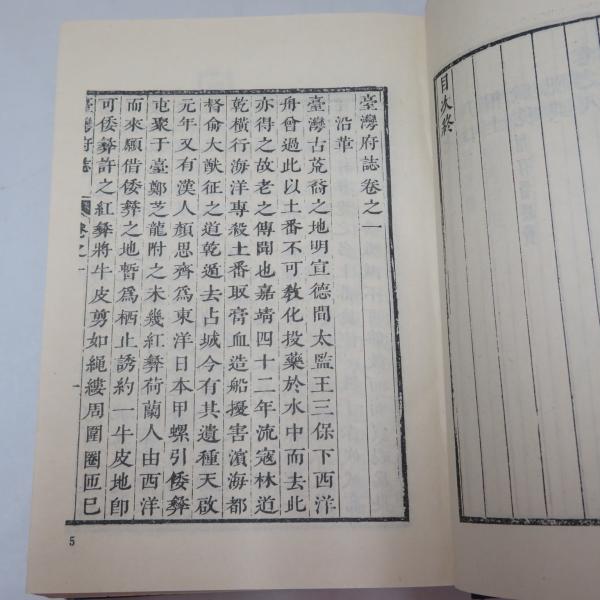 目次終
臺灣府誌卷之一
沿革
臺灣古荒裔之地明宣德間太監王三保下西洋
舟曾過此以土番不可教化投藥於水中而去此
亦得之故老之傳聞也嘉靖四十二年流寇林道
乾橫行海洋專殺土番取膏血造船擾害濱海都
督俞大猷征之道乾遁去占城今有其遺種天啟
元年又有漢人顏思齊為東洋日本甲螺引倭彝
屯聚于臺鄭芝龍附之未幾紅彝荷蘭人由西洋
而來願借倭彝之地暫為栖止誘約一牛皮地即
可倭彝許之紅彝將牛皮剪如繩縷周圍圈匝已
臺灣府誌
卷之一
一
5